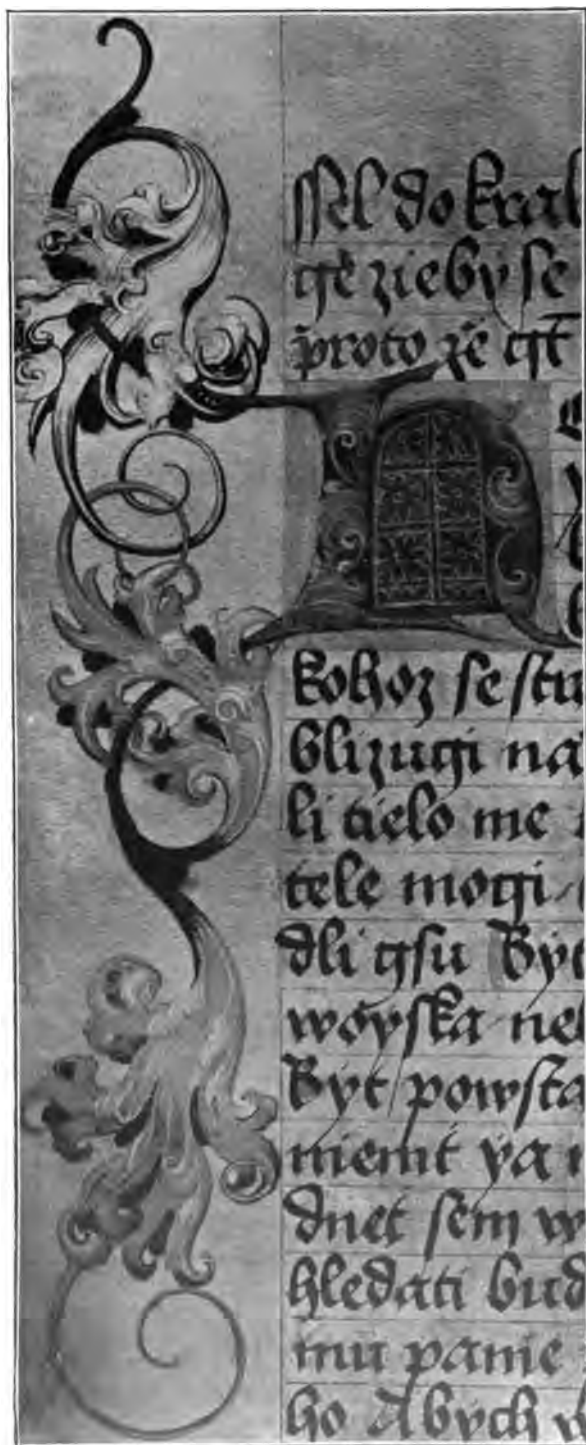 ssel do kral
gt̃ zieby se
proto ze gt̃
kohoz se stra
blizugi na
li tielo me
tele mogi
dli gsu Byt
woyska ne
Byt powsta
niemt ya
dnet sem w
hledati bud
mu panie
ho Abych w